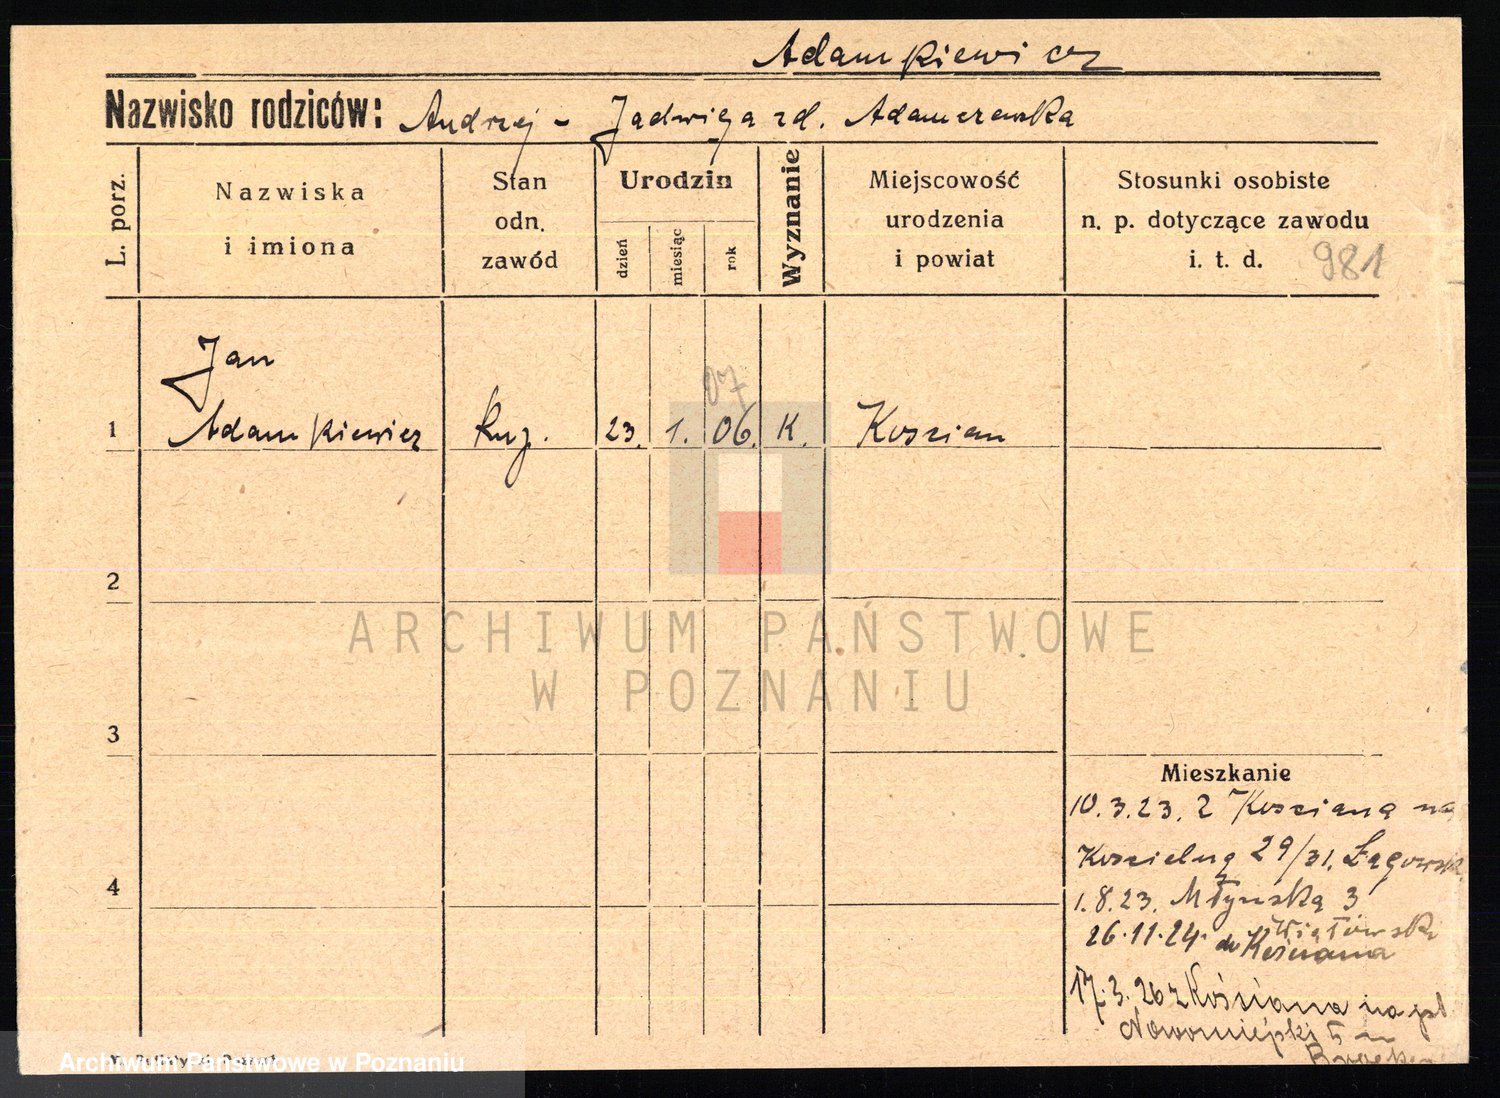 Adamkiewicz
Nazwisko rodziców: Andrzej - Jadwiga zd. Adamczewska
L. porz.
Nazwiska
i imiona
Stan
odn.
zawód
Urodzin
dzień
miesiąc
rok
Wyznanie
Miejscowość
urodzenia
i powiat
Stosunki osobiste
n. p. dotyczące zawodu
i. t. d. 981
Jan
07
1 Adamkiewicz 23. 1. 06. K. Koszian
2
ARCHIWUM PAŃSTWOWE
W POZNANIU
3
Mieszkanie
10.3.23. z Kosziana na
Koszielną 29/31.
4
1.8.23. Młynską 3
26.11.24. do Kościana
17.3.26 z Kościana na pl
Nowomiejski 5
Archiwum Państwowe w Poznaniu